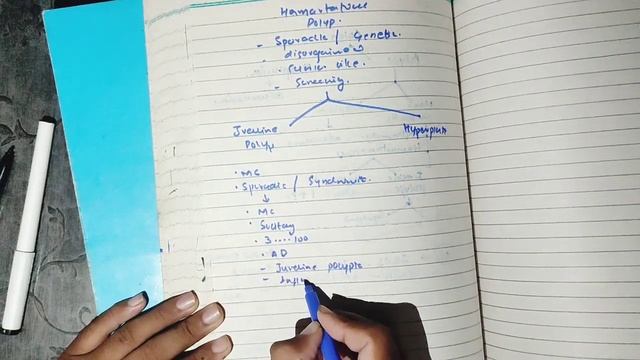 Hamartomatous
Polyp.
- Sporadic / Genetic.
- disorganised
- Screening.
Juvenile
Polyp
Hyperplastic
. MC
. Sporadic / Syndromic.
↓
. MC
. Solitary
. 3....100
. AD
- Juveline polypts